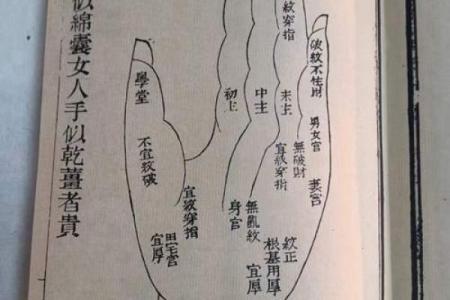 似綿囊女人手似乾薑者貴
破紋不住財
紋穿指
男女宮
妻宮
末主
無破財
宜紋穿指
中主
初主
無亂紋
身宮
紋正
根基用厚
宜厚
學堂
不宜紋破
宜紋穿指
田宅宮
宜厚